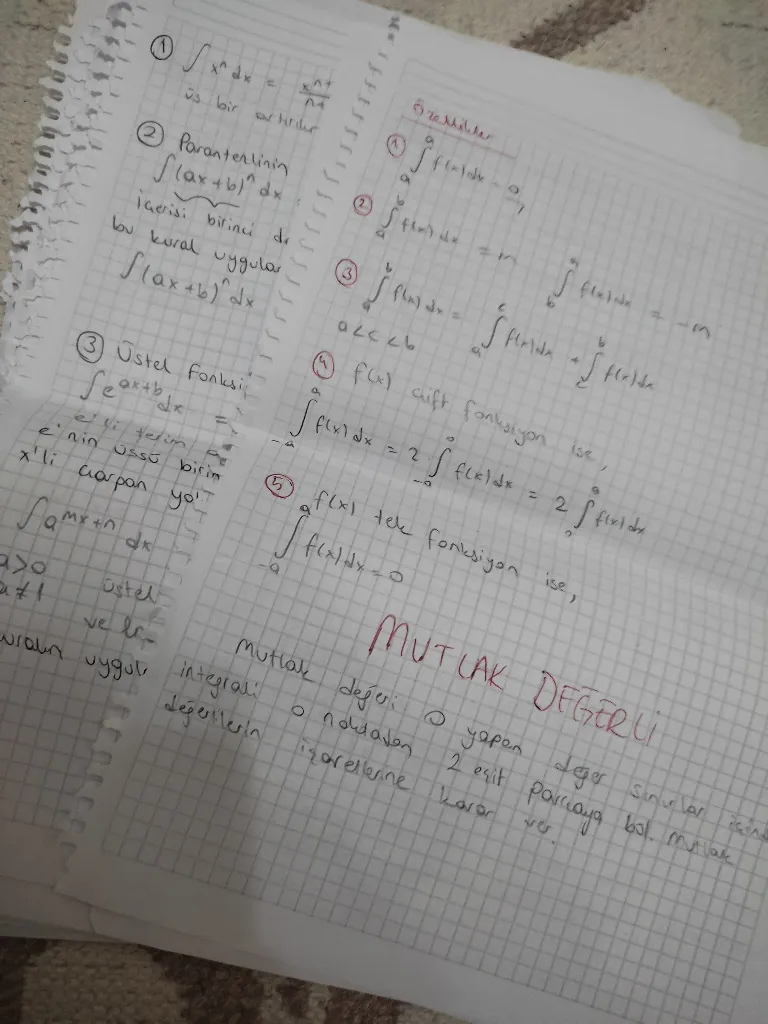 ① ∫ xⁿ dx = xⁿ⁺ / n+
üs bir arttırılır
② Parantezlinin
∫ (ax+b)ⁿ dx
içerisi birinci de
bu kural uygulan
∫ (ax+b)ⁿ dx
③ Üstel Fonksi
∫ e^(ax+b) dx =
e'li terim
e'nin üssü birin
x'li çarpan yo
∫ a^(mx+n) dx
a>0 üstel
a≠1 ve
uygul
Özellikler
① ∫ₐᵃ f(x) dx = 0
② ∫ₐᵇ f(x) dx = m ∫_b^a f(x) dx = -m
③ ∫ₐᵇ f(x) dx = ∫ₐᶜ f(x) dx + ∫_c^b f(x) dx
a<c<b
④ f(x) çift fonksiyon ise,
∫₋ₐᵃ f(x) dx = 2 ∫₋ₐ⁰ f(x) dx = 2 ∫₀ᵃ f(x) dx
⑤ f(x) tek fonksiyon ise,
∫₋ₐᵃ f(x) dx = 0
MUTLAK DEĞERLİ
Mutlak değeri 0 yapan değer sınırlar içinde
integrali o noktadan 2 eşit parçaya böl. Mutlak
değerlilerin işaretlerine karar ver.